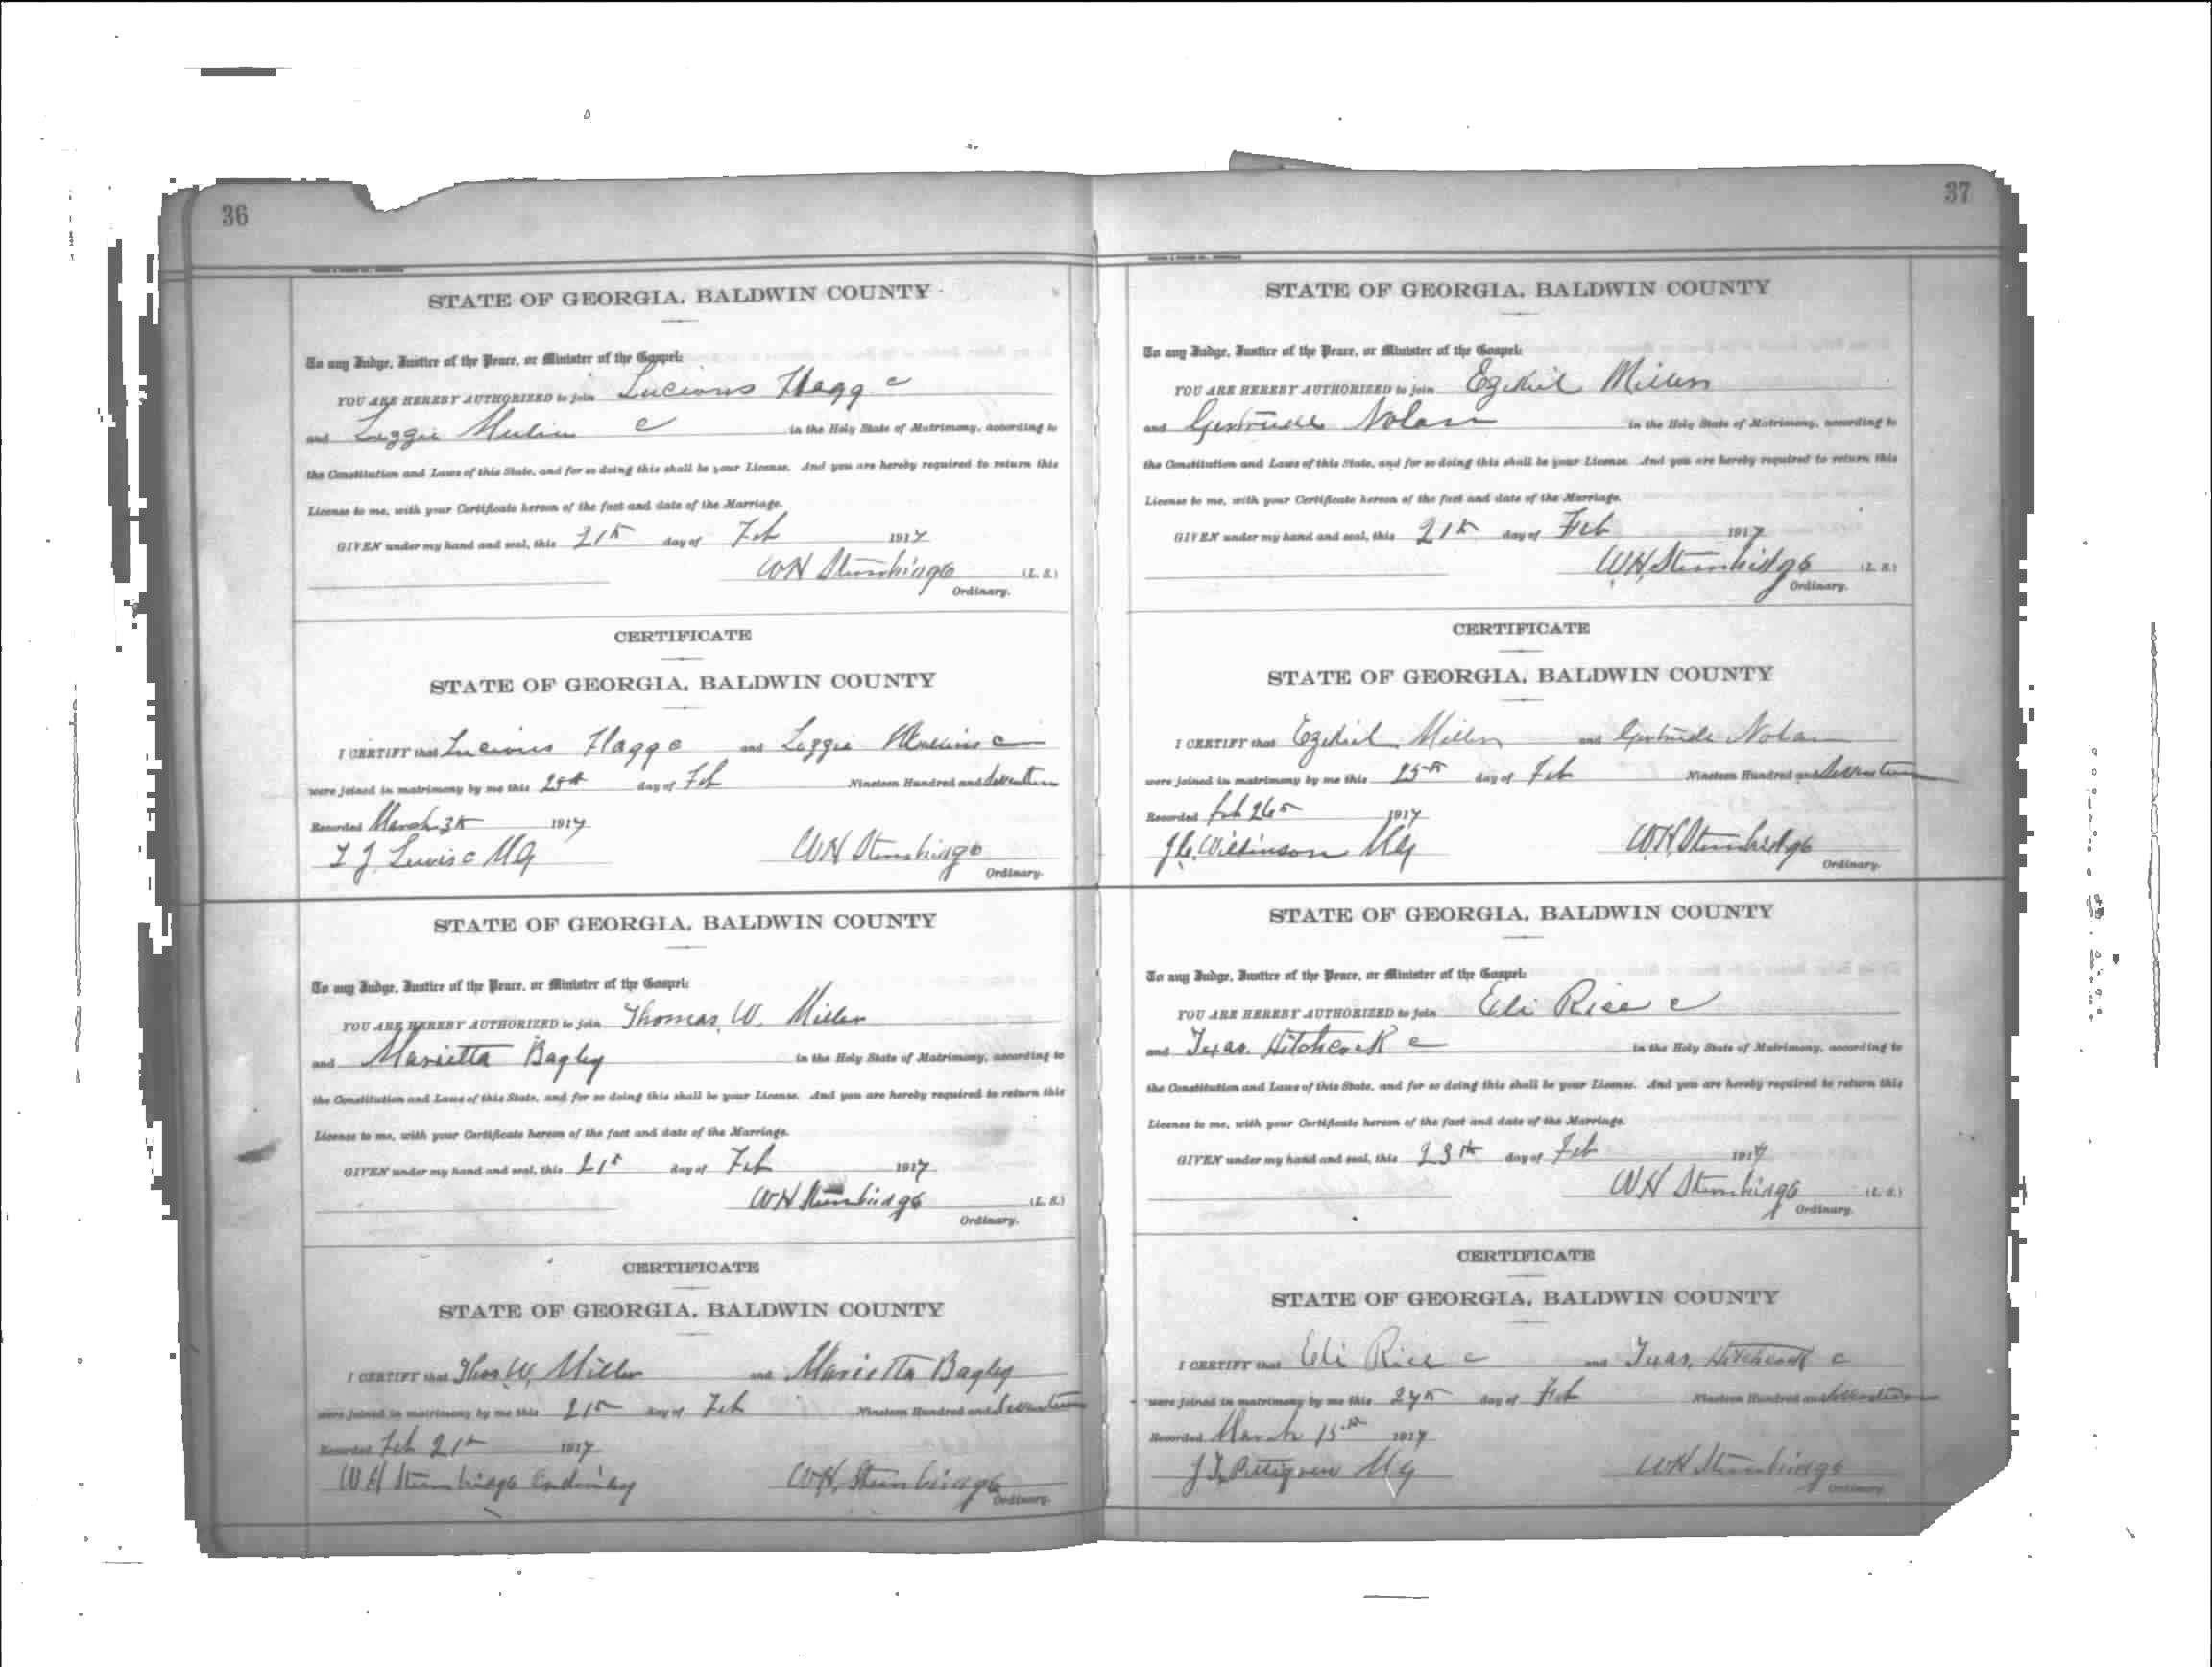 36
STATE OF GEORGIA, BALDWIN COUNTY
To any Judge, Justice of the Peace, or Minister of the Gospel:
YOU ARE HEREBY AUTHORIZED to join Lucious Flagg c
and Lizzie c in the Holy State of Matrimony, according to
the Constitution and Laws of this State, and for so doing this shall be your License. And you are hereby required to return this
License to me, with your Certificate hereon of the fact and date of the Marriage.
GIVEN under my hand and seal, this 21st day of Feb 1917
WH Stembridge (L. S.)
Ordinary.
CERTIFICATE
STATE OF GEORGIA, BALDWIN COUNTY
I CERTIFY that Lucious Flagg c and Lizzie c
were joined in matrimony by me this 25th day of Feb Nineteen Hundred and Seventeen
Recorded March 3rd 1917
Lewis c MG WH Stembridge
Ordinary.
STATE OF GEORGIA, BALDWIN COUNTY
To any Judge, Justice of the Peace, or Minister of the Gospel:
YOU ARE HEREBY AUTHORIZED to join Thomas W. Miller
and Marietta Bagley in the Holy State of Matrimony, according to
the Constitution and Laws of this State, and for so doing this shall be your License. And you are hereby required to return this
License to me, with your Certificate hereon of the fact and date of the Marriage.
GIVEN under my hand and seal, this 21st day of Feb 1917
WH Stembridge (L. S.)
Ordinary.
CERTIFICATE
STATE OF GEORGIA, BALDWIN COUNTY
I CERTIFY that Thos W. Miller and Marietta Bagley
were joined in matrimony by me this 21st day of Feb Nineteen Hundred and Seventeen
Recorded Feb 21st 1917
WH Stembridge Ordinary WH. Stembridge
Ordinary.
37
STATE OF GEORGIA, BALDWIN COUNTY
To any Judge, Justice of the Peace, or Minister of the Gospel:
YOU ARE HEREBY AUTHORIZED to join Ezekiel Miller
and Gertrude Nolan in the Holy State of Matrimony, according to
the Constitution and Laws of this State, and for so doing this shall be your License. And you are hereby required to return this
License to me, with your Certificate hereon of the fact and date of the Marriage.
GIVEN under my hand and seal, this 21st day of Feb 1917
WH Stembridge (L. S.)
Ordinary.
CERTIFICATE
STATE OF GEORGIA, BALDWIN COUNTY
I CERTIFY that Ezekiel Miller and Gertrude Nolan
were joined in matrimony by me this 25th day of Feb Nineteen Hundred and Seventeen
Recorded Feb 26th 1917
Wilkinson MG WH Stembridge
Ordinary.
STATE OF GEORGIA, BALDWIN COUNTY
To any Judge, Justice of the Peace, or Minister of the Gospel:
YOU ARE HEREBY AUTHORIZED to join Eli Rice c
and Texas Hitchcock c in the Holy State of Matrimony, according to
the Constitution and Laws of this State, and for so doing this shall be your License. And you are hereby required to return this
License to me, with your Certificate hereon of the fact and date of the Marriage.
GIVEN under my hand and seal, this 23rd day of Feb 1917
WH Stembridge (L. S.)
Ordinary.
CERTIFICATE
STATE OF GEORGIA, BALDWIN COUNTY
I CERTIFY that Eli Rice c and Texas Hitchcock c
were joined in matrimony by me this day of Feb Nineteen Hundred and Seventeen
Recorded March 15th 1917
Pettigrew MG WH Stembridge
Ordinary.